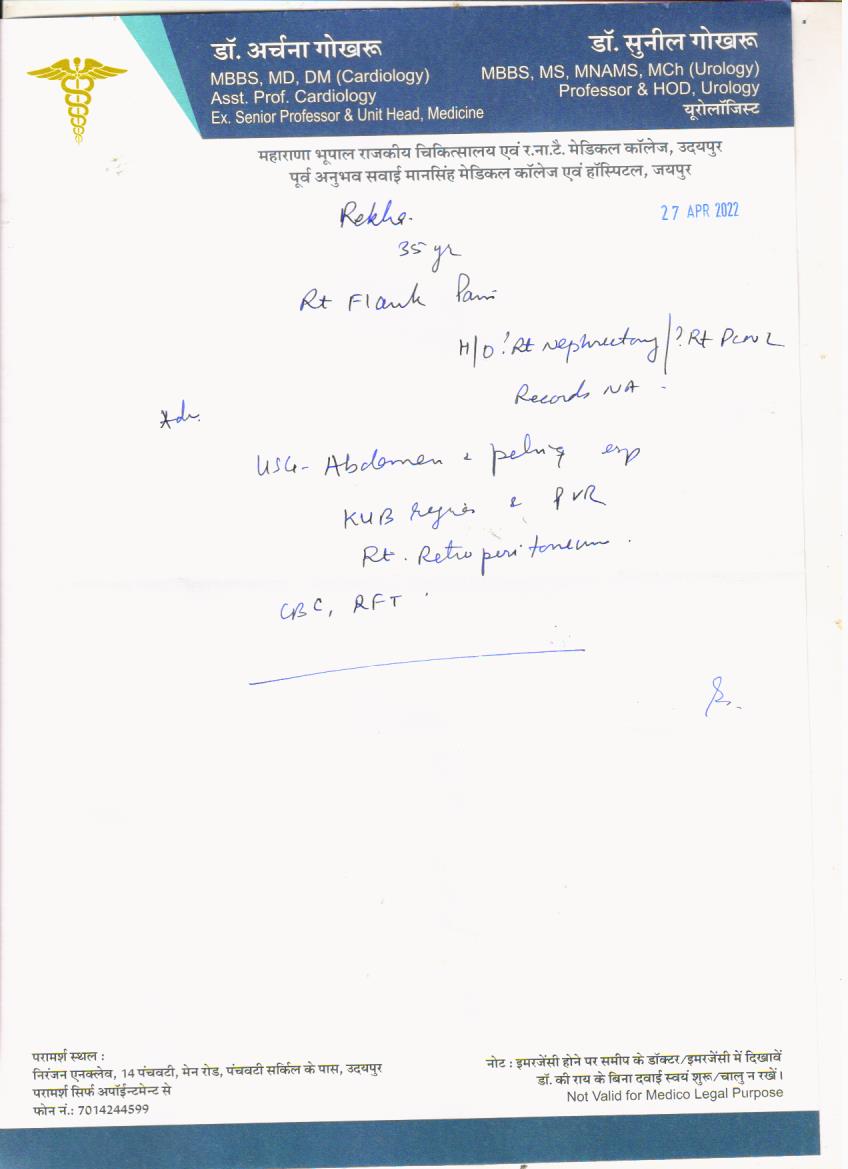 डॉ. अर्चना गोखरू
MBBS, MD, DM (Cardiology)
Asst. Prof. Cardiology
Ex. Senior Professor & Unit Head, Medicine
डॉ. सुनील गोखरू
MBBS, MS, MNAMS, MCh (Urology)
Professor & HOD, Urology
यूरोलॉजिस्ट
महाराणा भूपाल राजकीय चिकित्सालय एवं र.ना.टै. मेडिकल कॉलेज, उदयपुर
पूर्व अनुभव सवाई मानसिंह मेडिकल कॉलेज एवं हॉस्पिटल, जयपुर
27 APR 2022
Rekha.
35 yr
Rt Flank Pain
H/O ? Rt Nephrectomy / ? Rt PCNL
Records NA
Adv.
USG- Abdomen & pelvis esp
KUB region & PVR
Rt. Retroperitoneum.
CBC, RFT
परामर्श स्थल :
निरंजन एनक्लेव, 14 पंचवटी, मेन रोड, पंचवटी सर्किल के पास, उदयपुर
परामर्श सिर्फ अपॉईन्टमेन्ट से
फोन नं.: 7014244599
नोट : इमरजेंसी होने पर समीप के डॉक्टर/इमरजेंसी में दिखावें
डॉ. की राय के बिना दवाई स्वयं शुरू/चालु न रखें।
Not Valid for Medico Legal Purpose